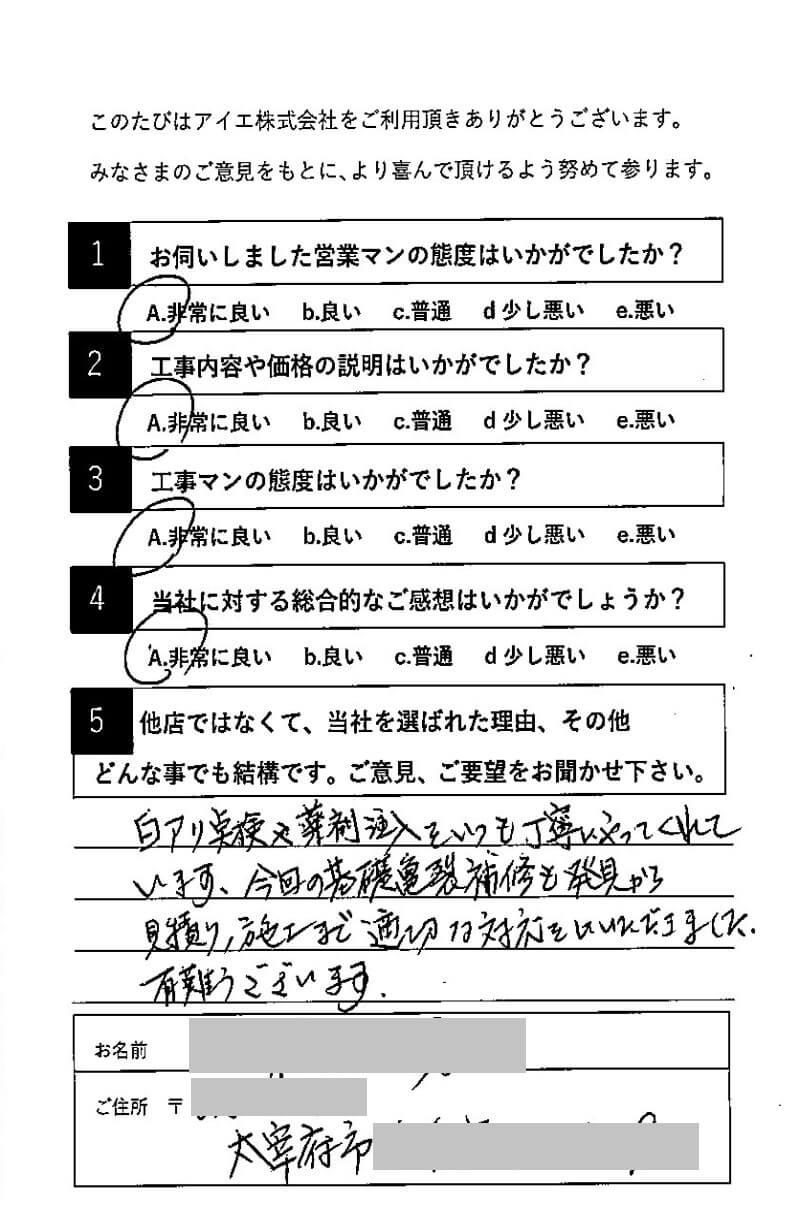 このたびはアイエ株式会社をご利用頂きありがとうございます。
みなさまのご意見をもとに、より喜んで頂けるよう努めて参ります。
1 お伺いしました営業マンの態度はいかがでしたか？
A.非常に良い b.良い c.普通 d 少し悪い e.悪い
2 工事内容や価格の説明はいかがでしたか？
A.非常に良い b.良い c.普通 d 少し悪い e.悪い
3 工事マンの態度はいかがでしたか？
A.非常に良い b.良い c.普通 d 少し悪い e.悪い
4 当社に対する総合的なご感想はいかがでしょうか？
A.非常に良い b.良い c.普通 d 少し悪い e.悪い
5 他店ではなくて、当社を選ばれた理由、その他
どんな事でも結構です。ご意見、ご要望をお聞かせ下さい。
白アリ点検や薬剤注入をいつも丁寧にやってくれて
います、今回の基礎亀裂補修も発見から
見積り,施工まで適切な対応をしていただきました.
有難うございます.
お名前
ご住所 〒
太宰府市